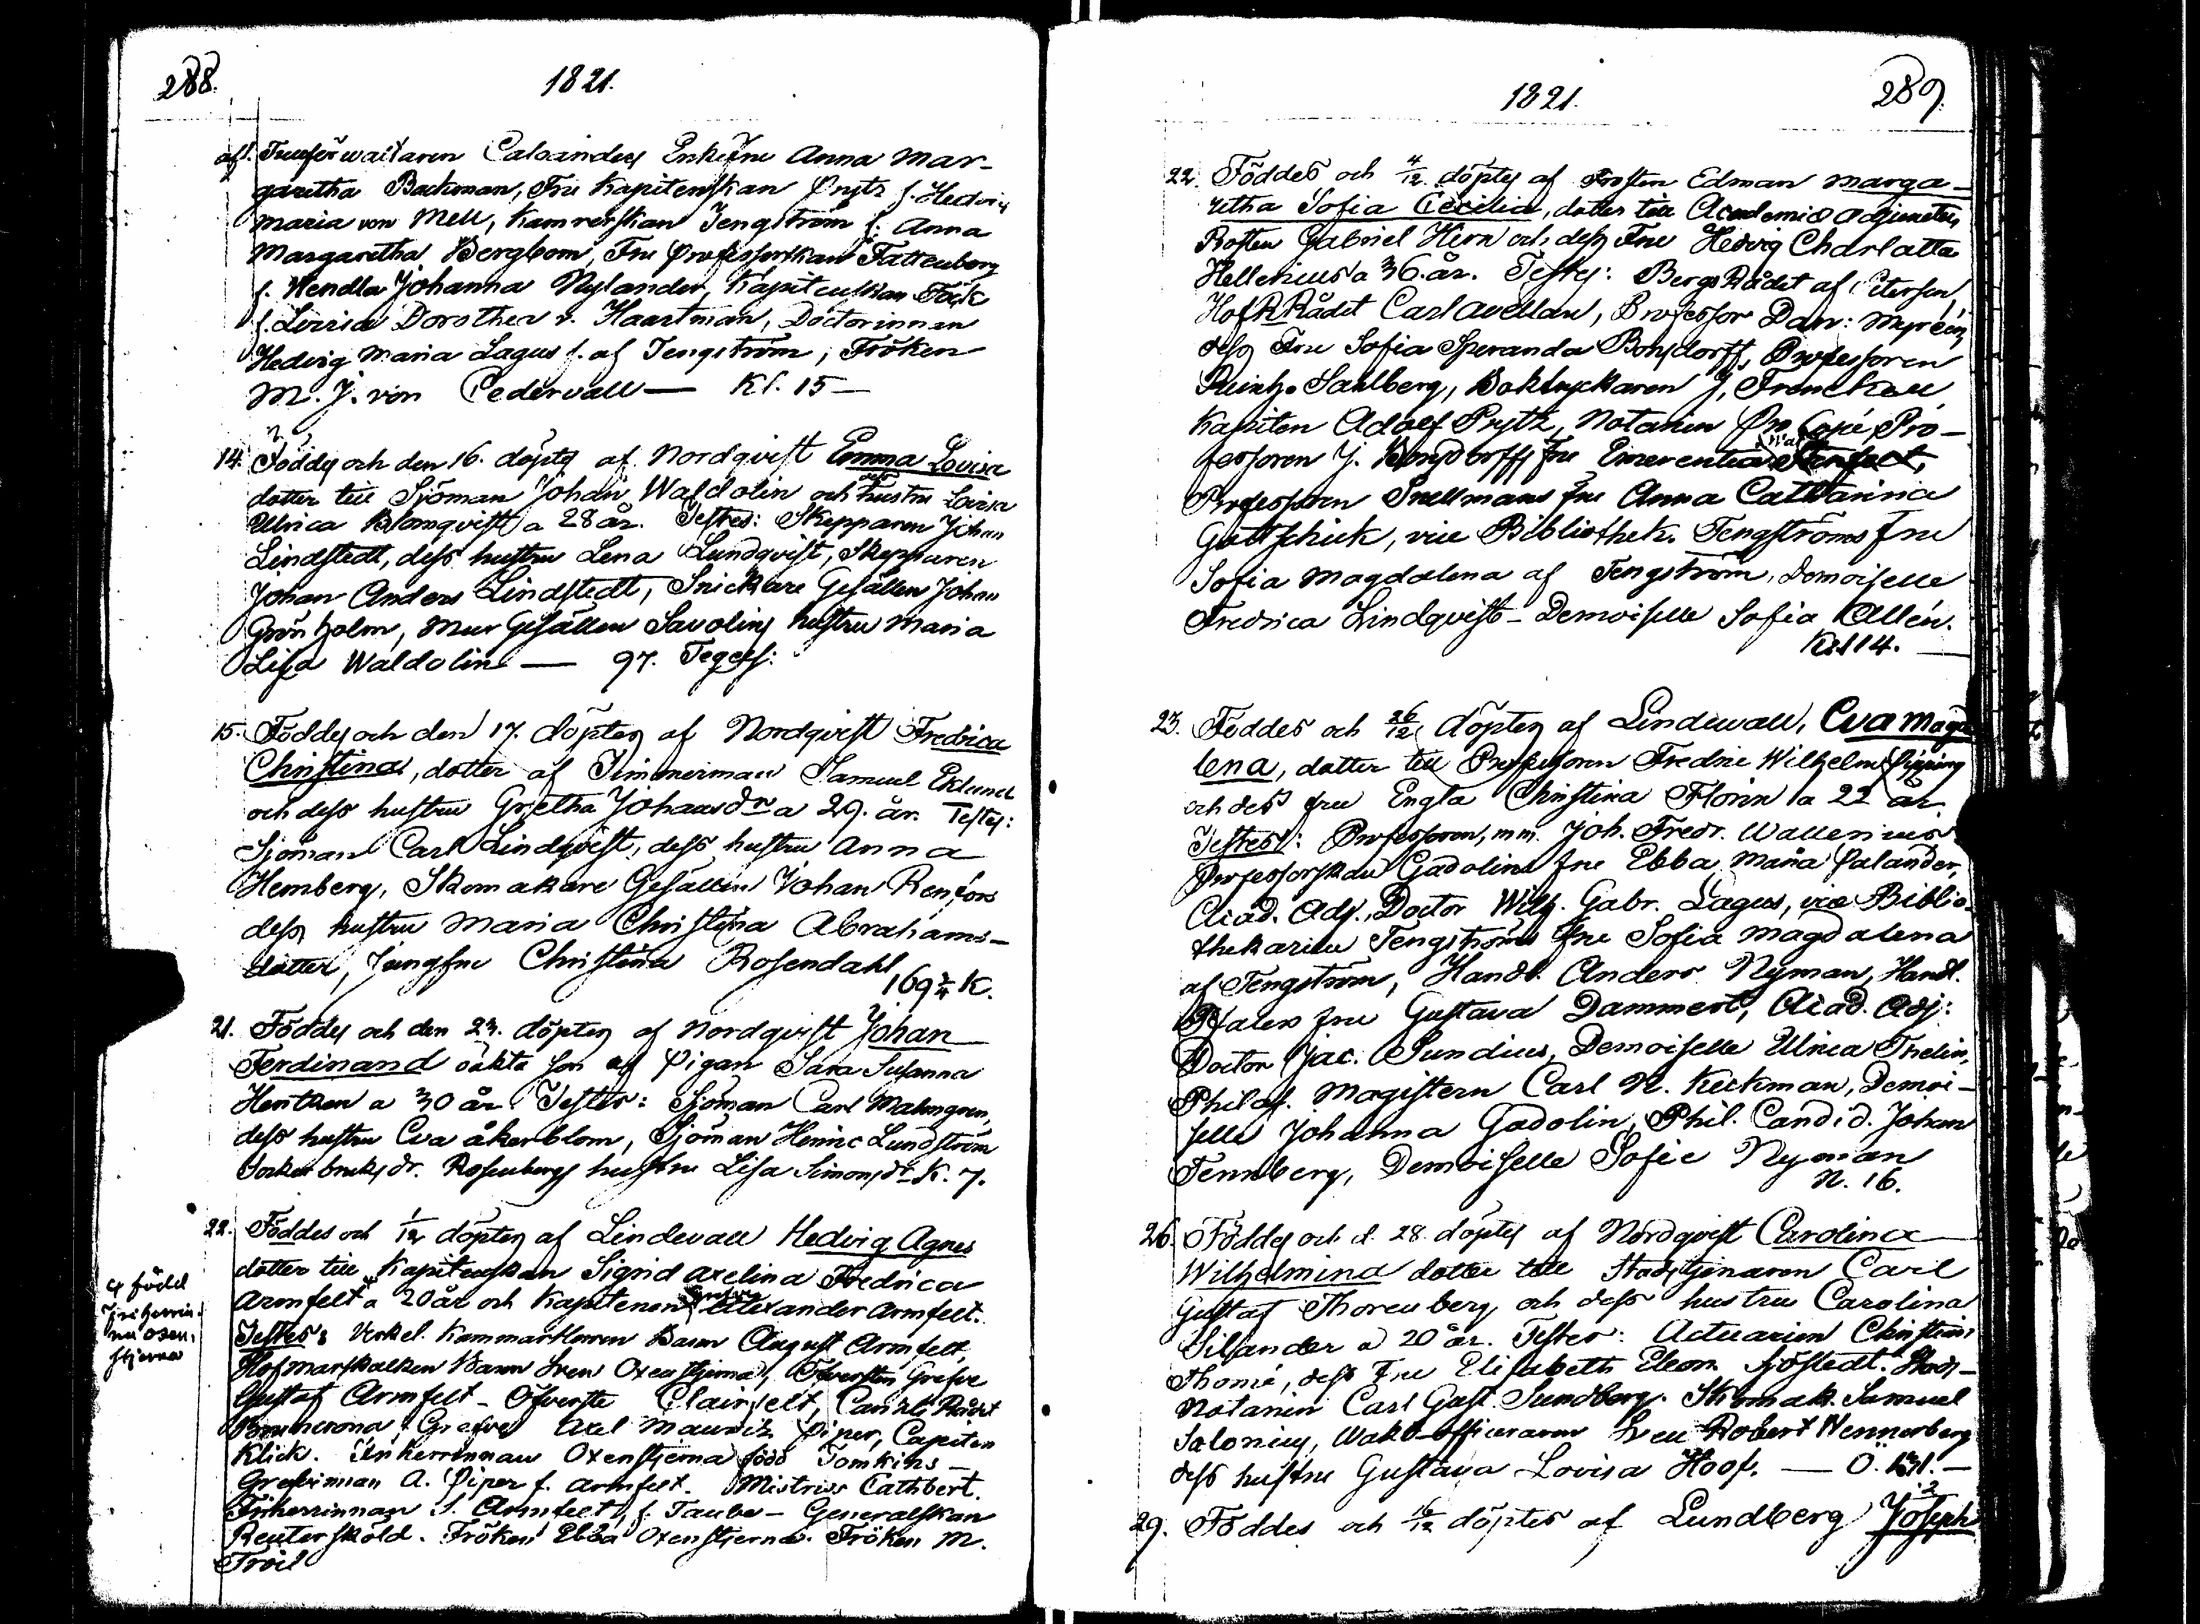 288.
1821.
af. Calainders Enkefru Anna Mar-
garetha Backman, Fru Kapitenskan Prytz f. Hedvig
Maria von Mell, Kamrerskan Tengström f. Anna
Margaretha Bergbom, Fru Professorskan Fattenborg
f. Hendla Johanna Nylander, Kapitenskan Föck
f. Lovisa Dorothea v. Haartman, Doctorinnan
Hedvig Maria Lagus f. af Tengström, Fröken
M. J. von Cedervall — Kl. 15 —
14. Föddes och den 16. döptes af Nordqvist Emma Lovisa
dotter till Sjöman Johan Waldolin och dess hustru Lovisa
Ulrica Blomqvist a 28 år. Testes: Skepparen Johan
Lindstedt, dess hustru Lena Lundqvist, Skepparen
Johan Anders Lindstedt, Snickare Gesällen Johan
Grönholm, Mur Gesällen Savolins hustru Maria
Lisa Waldolin — 97. Tegels:
15. Föddes och den 17. döptes af Nordqvist Fredrica
Christina, dotter af Timmerman Samuel Eklund
och dess hustru Gretha Johansdr a 29. år. Testes:
Sjöman Carl Lindqvist, dess hustru Anna
Hemberg, Skomakare Gesällen Johan Renfors
dess hustru Maria Christina Abrahams-
dotter, Jungfru Christina Rosendahl
169 K.
21. Föddes och den 23. döptes af Nordqvist Johan
Ferdinand oäkta son af Pigan Sara Susanna
a 30 år. Testes: Sjöman Carl Malmgren,
dess hustru Eva Åkerblom, Sjöman Henric Lundström
Sockerbruks dr. Rosenbergs hustru Lisa Simonsdr K. 7.
22. Föddes och 1/12 döptes af Lindevall Hedvig Agnes
dotter till Kapitenskan Sigrid Axelina Fredrica
Armfelt x a 20 år och Kapitenen Grefve Alexander Armfelt.
x född
Friherrin-
na Oxen-
stjerna
Testes: Verkel. Kammarherren Baron August Armfelt,
Hofmarskalken Baron Sven Oxenstjerna, Öfversten Grefve
Gustaf Armfelt - Öfverste Clairfelt, Canzli Rådet
Grefve Axel Mauritz Piper, Capiten
Klick. Friherrinnan Oxenstjerna född Tomkins -
Grefvinnan A. Piper f. Armfelt. Mistriss Cathbert.
Friherrinnan S. Armfelt, f. Taube - Generalskan
Reuterskold. Fröken Ebba Oxenstjerna. Fröken M.
Troil
289.
1821.
22. Föddes och 4/12 döptes af Prosten Edman Marga-
retha Sofia Cecilia, dotter till Academie Adjuncten,
Prosten Gabriel Hirn och dess Fru Hedvig Charlotta
Hellenius a 36. år. Testes: BergsRådet af Petersen,
HofRRådet Carl Avellan, Professor Dan: Myréen,
dess Fru Sofia Speranda Bonsdorff, Professoren
Reinh. Sahlberg, Boktryckaren J. Frenckell
Kapiten Adolf Prytz, Notarien Pro-
fessoren J. Bonsdorffs Fru Emerentia
Professorn Snellmans Fru Anna Catharina
Gottschick, vice Bibliothek. Tengströms Fru
Sofia Magdalena af Tengström, Demoiselle
Fredrica Lindqvist - Demoiselle Sofia Allén.
Kl. 14. —
23. Föddes och 26/12 döptes af Lindevall, Eva Magda
lena, dotter till Professoren Fredric Wilhelm Pipping
och dess fru Engla Christina Florin a 22 år
Testes: Professoren, m.m. Joh. Fredr. Wallenius
Professorskan Gadolins fru Ebba Maria Palander,
Acad. Adj. Doctor Wilh. Gabr. Lagus, vice Biblio-
thekarien Tengströms Fru Sofia Magdalena
af Tengström, Handl. Anders Nyman, Handl.
fru Gustava Dammert, Acad. Adj:
Doctor Jac. Sundius, Demoiselle Ulrica Thelin,
Philos. Magistern Carl N. Keckman, Demoi-
selle Johanna Gadolin, Phil. Candid. Johan
Tennberg, Demoiselle Sofie Nyman
N. 16.
26. Föddes och d. 28. döptes af Nordqvist Carolina
Wilhelmina dotter till Stadstjenaren Carl
Gustaf Thorenberg och dess hustru Carolina
Silander a 20 år. Testes: Actuarien Christian
Thomé, dess Fru Elisabeth Eleon. Sjöstedt. Stads-
Notarien Carl Gust. Sundberg. Skomak. Samuel
Salonius, Wakt-officeraren Sven Robert Wennerberg
dess hustru Gustava Lovisa Hoof. —
29. Föddes och 16/12 döptes af Lundberg Joseph